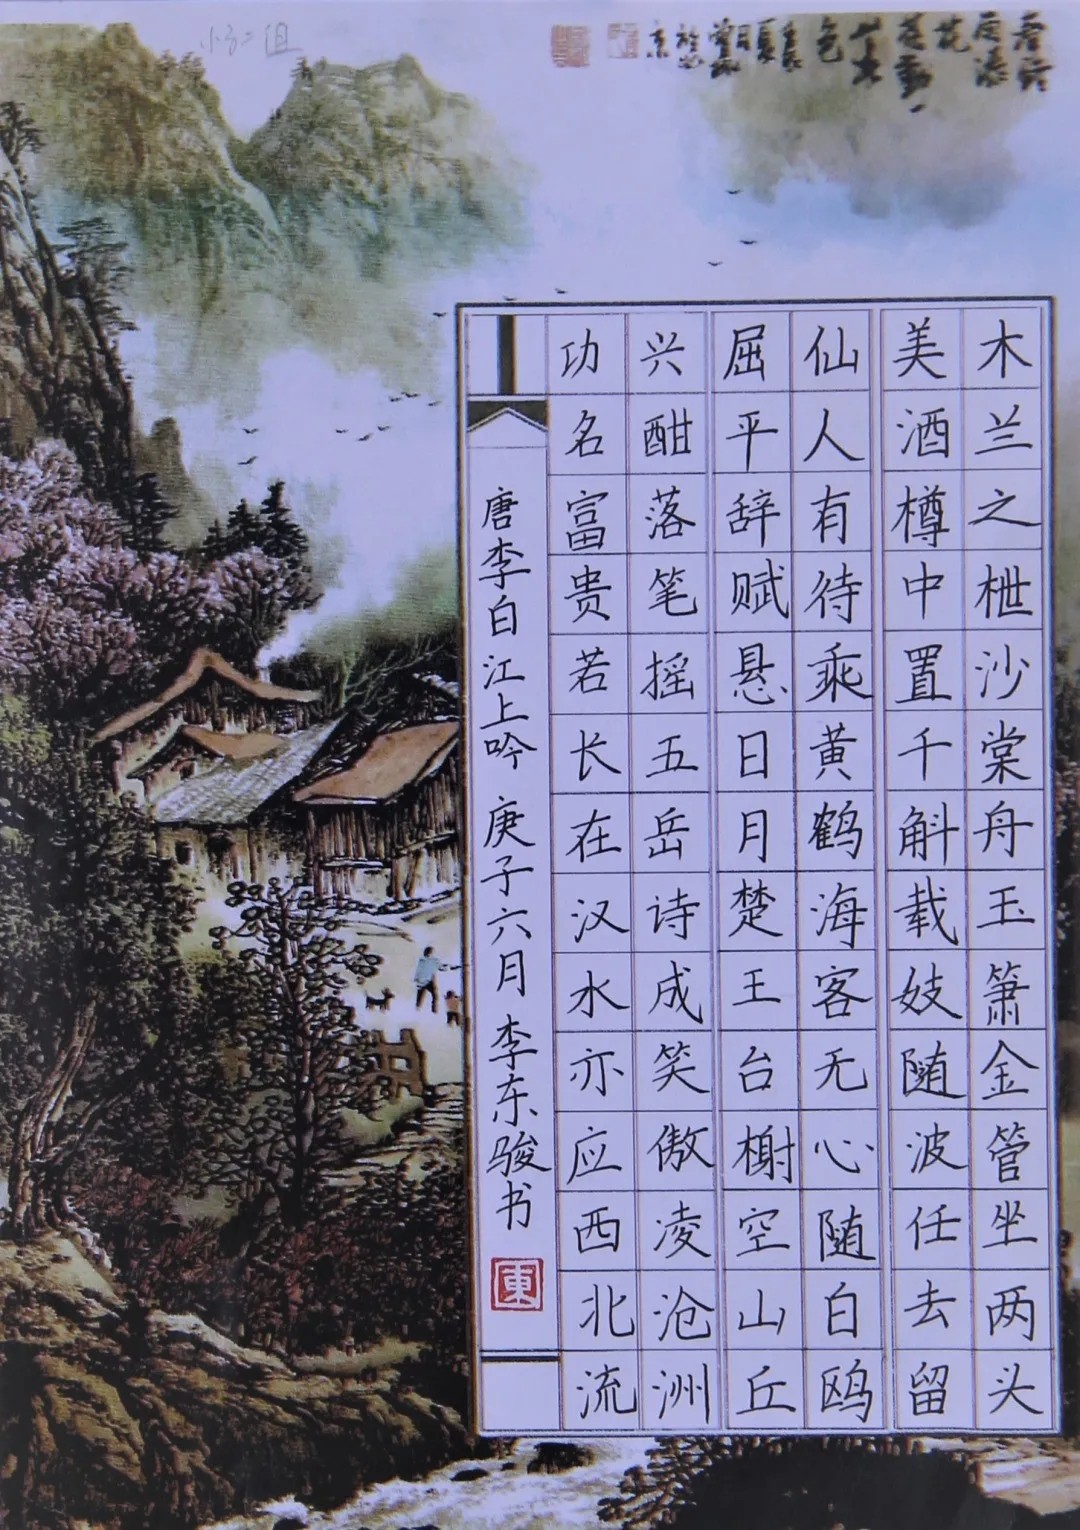 木兰之枻沙棠舟玉箫金管坐两头
美酒樽中置千斛载妓随波任去留
仙人有待乘黄鹤海客无心随白鸥
屈平辞赋悬日月楚王台榭空山丘
兴酣落笔摇五岳诗成笑傲凌沧洲
功名富贵若长在汉水亦应西北流
唐李白 江上吟 庚子六月 李东骏书
東